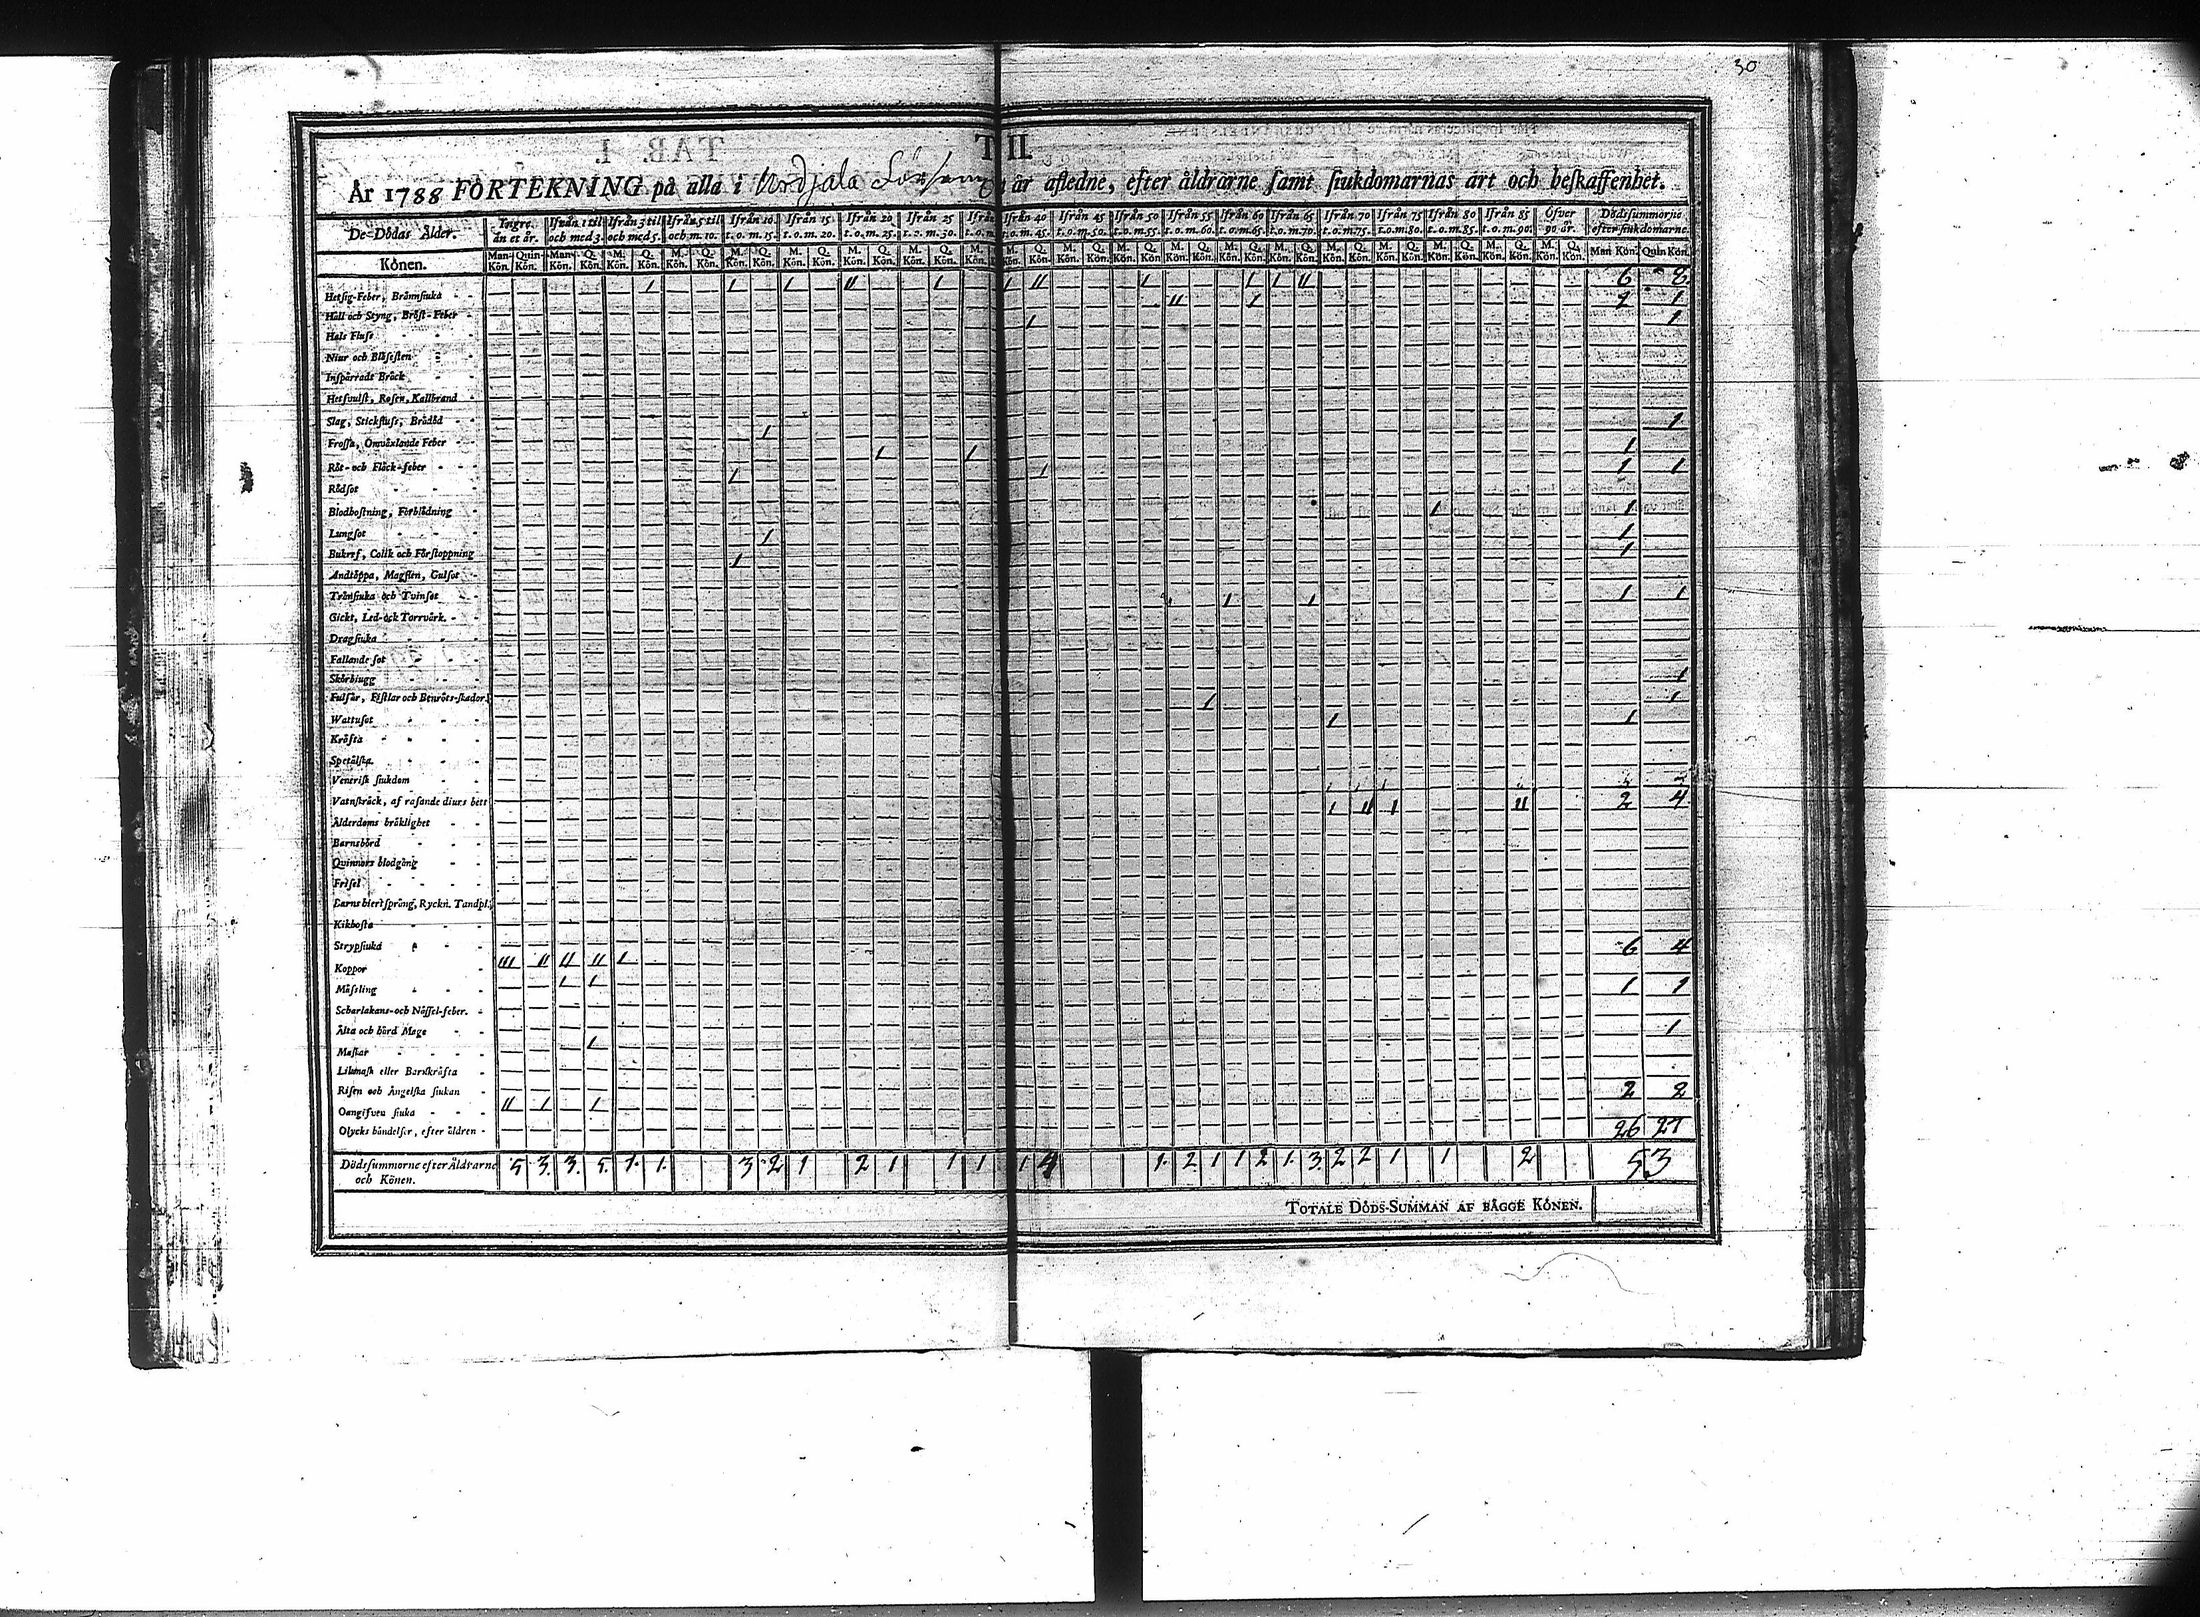 30
TAB. I.
T II.
År 1788 FÖRTEKNING på alla i Urdjala Församl är afledne, efter åldrarne samt siukdomarnas art och beskaffenhet.
De Dödas Ålder. Yngre än et år. Ifrån 1 til och med 3. Ifrån 3 til och med 5. Ifrån 5 til och m. 10. Ifrån 10. t. o. m. 15. Ifrån 15. t. o. m. 20. Ifrån 20 t. o. m. 25. Ifrån 25 t. o. m. 30. Ifrån t. o. m. Ifrån 40 t. o. m. 45. Ifrån 45 t. o. m. 50. Ifrån 50 t. o. m. 55. Ifrån 55 t. o. m. 60. Ifrån 60 t. o. m. 65. Ifrån 65 t. o. m. 70. Ifrån 70 t. o. m. 75. Ifrån 75 t. o. m. 80. Ifrån 80 t. o. m. 85. Ifrån 85 t. o. m. 90. Öfver 90 år. Dödssummorne efter siukdomarne.
Könen. Man-Kön. Quin-Kön. Man-Kön. Q. Kön. M. Kön. Q. Kön. M. Kön. Q. Kön. M. Kön. Q. Kön. M. Kön. Q. Kön. M. Kön. Q. Kön. M. Kön. Q. Kön. M. Kön. M. Kön. Q. Kön. M. Kön. Q. Kön. M. Kön. Q. Kön. M. Kön. Q. Kön. M. Kön. Q. Kön. M. Kön. Q. Kön. M. Kön. Q. Kön. M. Kön. Q. Kön. M. Kön. Q. Kön. M. Kön. Q. Kön. M. Kön. Q. Kön. Man Kön. Quin Kön.
Hetsig-Feber, Brännsiuka 1 1 1 11 1 1 11 1 1 1 11 6 8
Håll och Styng, Bröst-Feber 11 1 2 1
Hals Fluss 1 1
Niur och Blåsesten
Inspärradt Bråck
Hetsvulst, Rosen, Kallbrand
Slag, Stickfluss, Brådöd 1 1
Frossa, Omväxlande Feber 1 1 1
Röt- och Fläck-feber 1 1 1 1
Rödsot
Blodhostning, Förblödning 1 1
Lungsot 1 1
Bukref, Colik och Förstoppning 1 1
Andtäppa, Magsten, Gulsot
Trånsiuka och Tvinsot 1 1 1 1
Gickt, Led-ock Torrvärk.
Dragsiuka
Fallande sot
Skörbiugg 1
Fulsår, Fistlar och Benröts-skador. 1 1
Wattusot 1 1
Kräfta
Spetälska
Venerisk siukdom
Vatnskräck, af rasande diurs bett 1 11 1 11 2 4
Ålderdoms bräklighet
Barnsbörd
Quinnors blodgång
Frisel
Barns hiertsprång, Ryckn. Tandpl.
Kikhosta
Strypsiuka 6 4
Koppor 111 11 11 11 1
Mässling 1 1 1 1
Scharlakans-och Nässel-feber.
Älta och hård Mage 1
Maskar 1
Likmask eller Barnkräfta
Risen och Ängelska siukan 2 2
Oangifven siuka 11 1 1
Olycks händelser, efter åldren 26 27
Dödssummorne efter Åldrarne och Könen. 5 3. 3. 5. 1. 1. 3 2 1 2 1 1 1 1 4 1. 2 1 1 2 1. 3. 2 2 1 1 2 53
TOTALE DÖDS-SUMMAN AF BÅGGE KÖNEN.